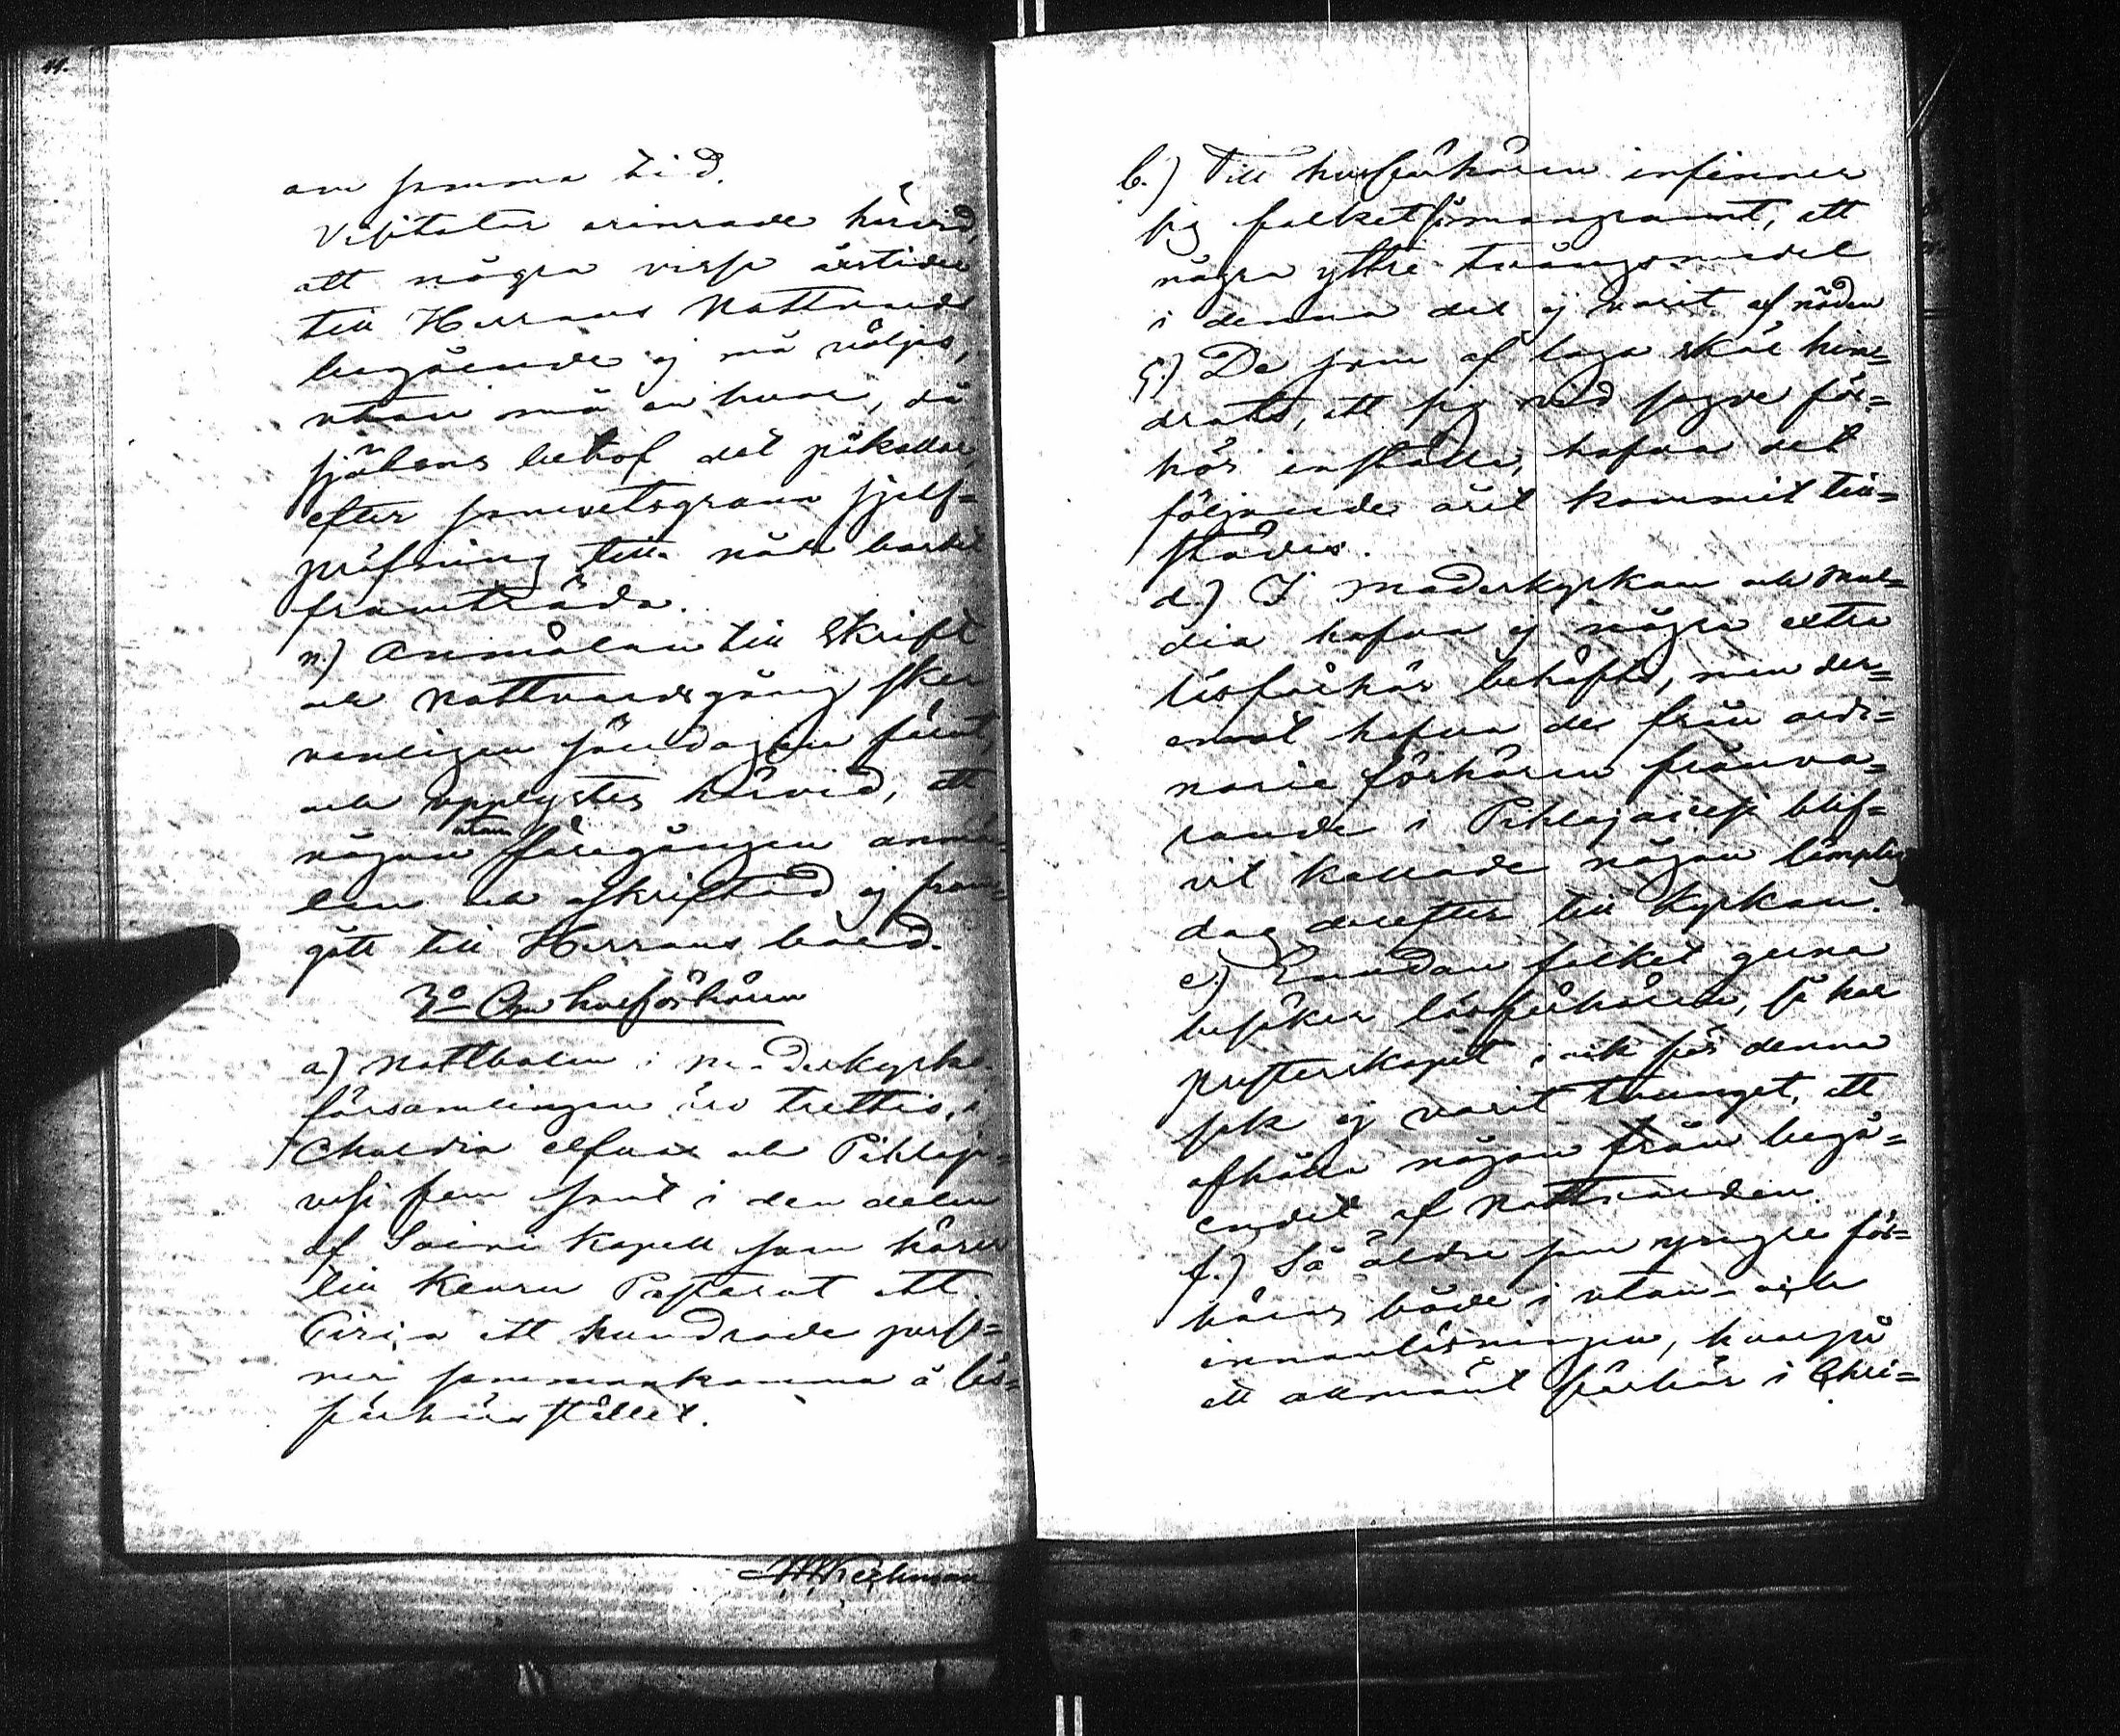 44.
om samma tid.
Visitator erinrade härvid,
att några vissa årstider
till Herrans Nattvards
begående ej må väljas,
utan må en hvar, då
själens behof det påkallar,
efter samvetsgrann sjelf-
pröfning till nåde bordet
framträda.
n.) Anmälan till Skrift
och Nattvardsgång sker
vanligen söndagen förut,
och upplystes härvid, att
någon utan föregången anmä-
lan och skriftad ej fram-
gått till Herrans bord.
3o Om husförhören
a) Nattbolen i Moderkyrko-
församlingen äro trettio, i
Muldia elfva och Pihlaja-
vesi fem samt i den delen
af Soini Kapell som hörer
till Keuru Pastorat ett.
Circa ett hundrade perso-
ner sammankomma å läs-
förhörsstället.
b.) Till husförhören infinner
sig folket så mangrant, att
några yttre tvångsmedel
i denna del ej varit af nöden
c.) De som af laga skäl hin-
drats, att sig vid sagde för-
hör inställa, hafva det
följande året kommit till-
städes.
d.) I moderkyrkan och Mul-
dia hafva ej några extra
läsförhör behöfts, men der-
emot hafva de från ordi-
narie förhören frånva-
rande i Pihlajavesi blif-
vit kallade någon lämplig
dag derefter till Kyrkan.
e.) Emedan folket gerna
besöker läsförhören, så har
presterskapet ock för denna
sak ej varit tvunget, att
afhålla någon från begå-
endet af Nattvarden.
f.) Så äldre som yngre för-
höras både i utan- och
innanläsningen, hvarpå
ett allmänt förhör i Chri-